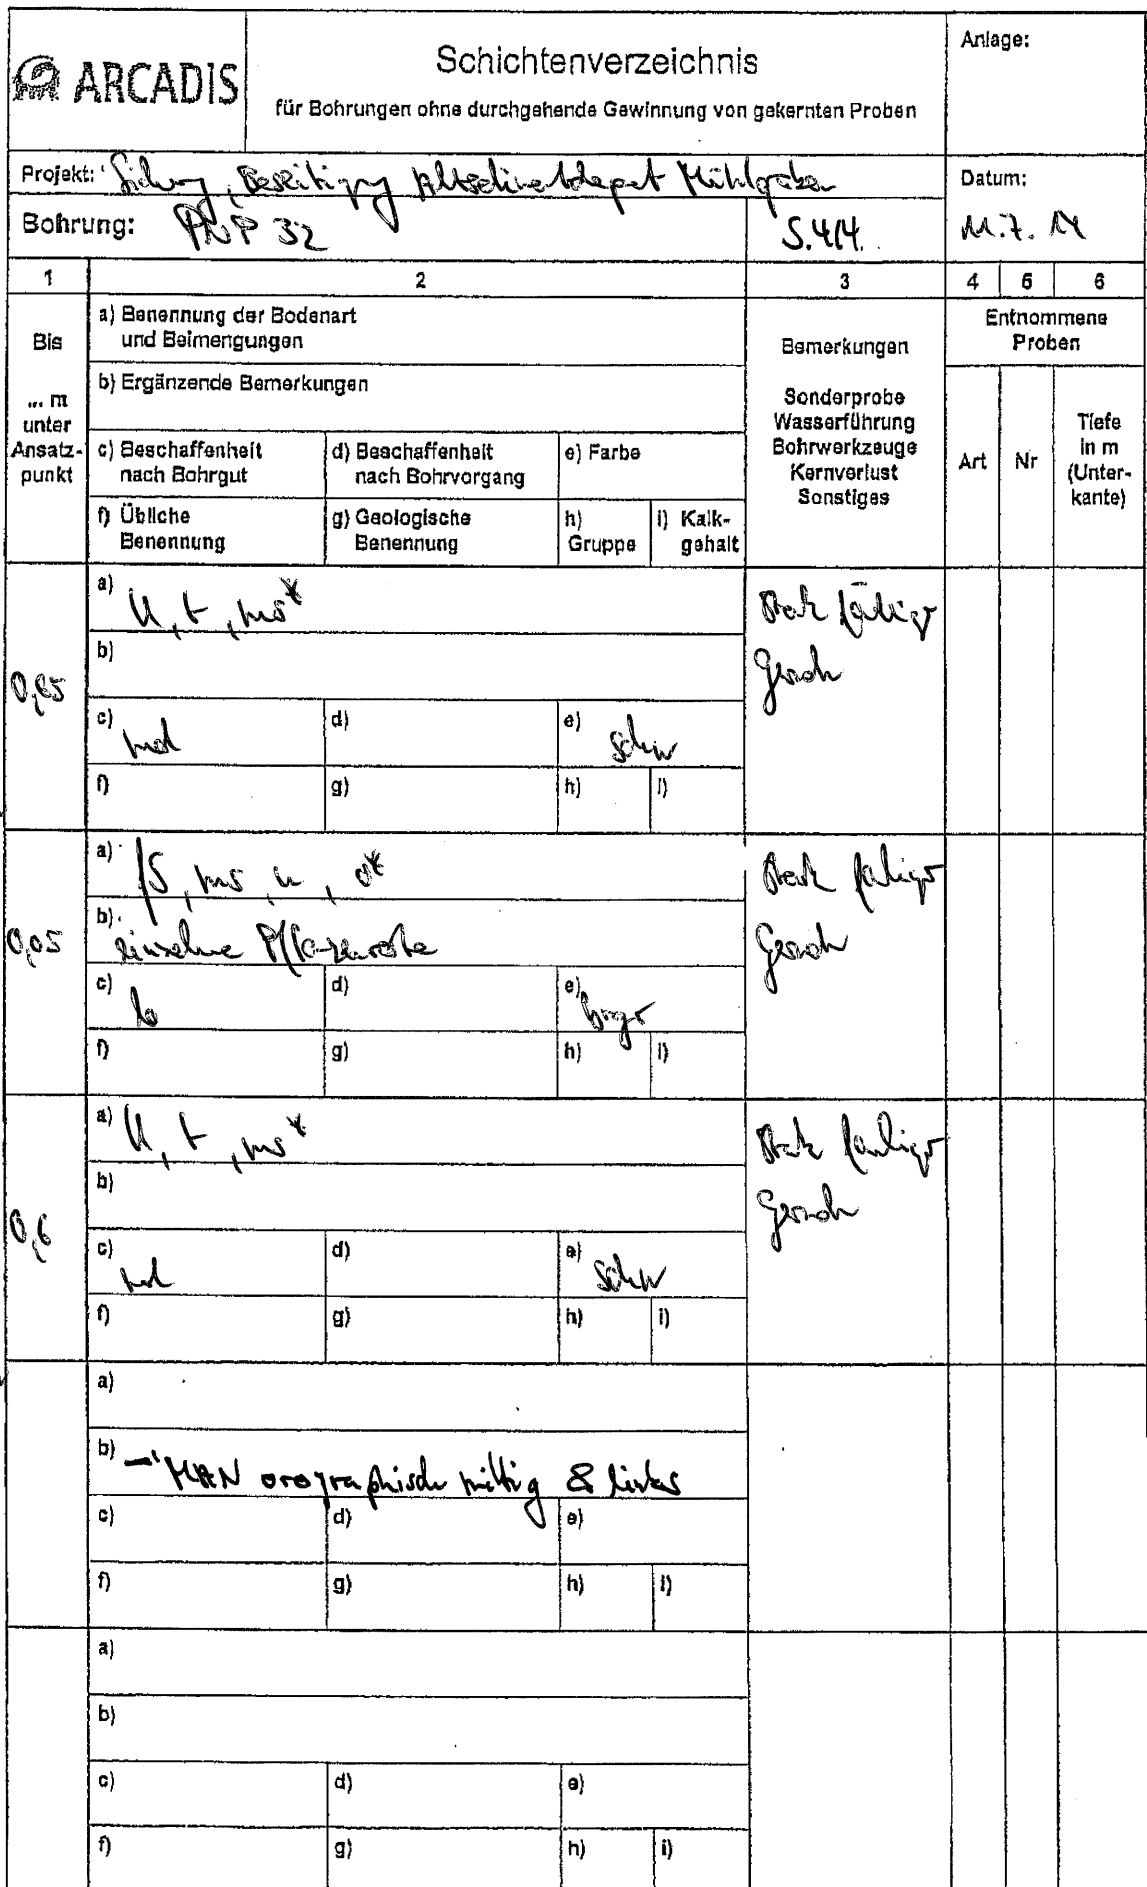 ARCADIS
Schichtenverzeichnis
für Bohrungen ohne durchgehende Gewinnung von gekernten Proben
Anlage:
Projekt: Beseitigung Altsedimentdepot Mühlgraben
Datum:
Bohrung: PNP 32 S.4/4.
11.7.
1 2 3 4 5 6
Bis
... m
unter
Ansatz-
punkt
a) Benennung der Bodenart
und Beimengungen
b) Ergänzende Bemerkungen
c) Beschaffenheit
nach Bohrgut
d) Beschaffenheit
nach Bohrvorgang
e) Farbe
f) Übliche
Benennung
g) Geologische
Benennung
h)
Gruppe
i) Kalk-
gehalt
Bemerkungen
Sonderprobe
Wasserführung
Bohrwerkzeuge
Kernverlust
Sonstiges
Entnommene
Proben
Art
Nr
Tiefe
in m
(Unter-
kante)
a) U, t, ms*
stark fauliger
b)
Geruch
c) d) e) schw
f) g) h) i)
a) fS, ms, u, o*
stark fauliger
0,05
b) einzelne Pflanzenreste
Geruch
c) lo d) e)
f) g) h) i)
a) U, t, ms*
stark fauliger
b)
Geruch
0,6
c) d) e) schw
f) g) h) i)
a)
b) → MAN orographisch mittig & links
c) d) e)
f) g) h) i)
a)
b)
c) d) e)
f) g) h) i)